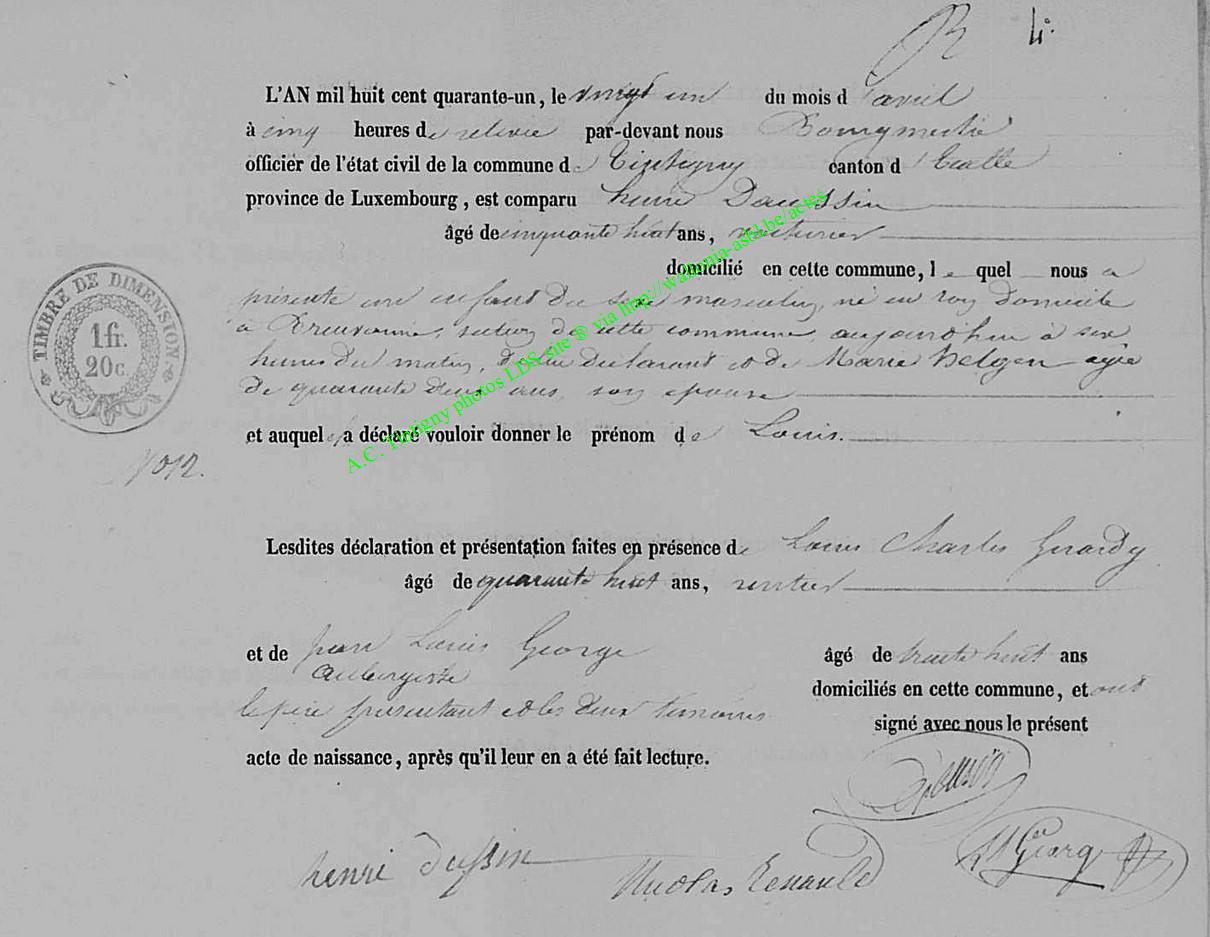 B 4°
L'AN mil huit cent quarante-un, le vingt un du mois d'avril
à cinq heures de relevée par-devant nous Bourgmestre
officier de l'état civil de la commune de Tintigny canton d'Etalle
province de Luxembourg, est comparu henri Daussin
âgé de cinquante huit ans,
domicilié en cette commune, le quel nous a
présenté un enfant du sexe masculin, né en son domicile
à Breuvanne, section de cette commune, aujourd'hui à six
heures du matin, de lui déclarant et de Marie agée
de quarante deux ans, son épouse
et auquel il a déclaré vouloir donner le prénom de Louis.
TIMBRE DE DIMENSION
1 fr.
20 c.
N° 12.
Lesdites déclaration et présentation faites en présence de Louis Charles Gerardy
âgé de quarante huit ans, rentier
et de jean Louis George âgé de trente huit ans
aubergiste
domiciliés en cette commune, et ont
le père présentant et les deux témoins signé avec nous le présent
acte de naissance, après qu'il leur en a été fait lecture.
henri dussin
Nicolas Renauld
George
A.C. Tintigny photos LDS site ® via http://wallonia-asbl.be/actes